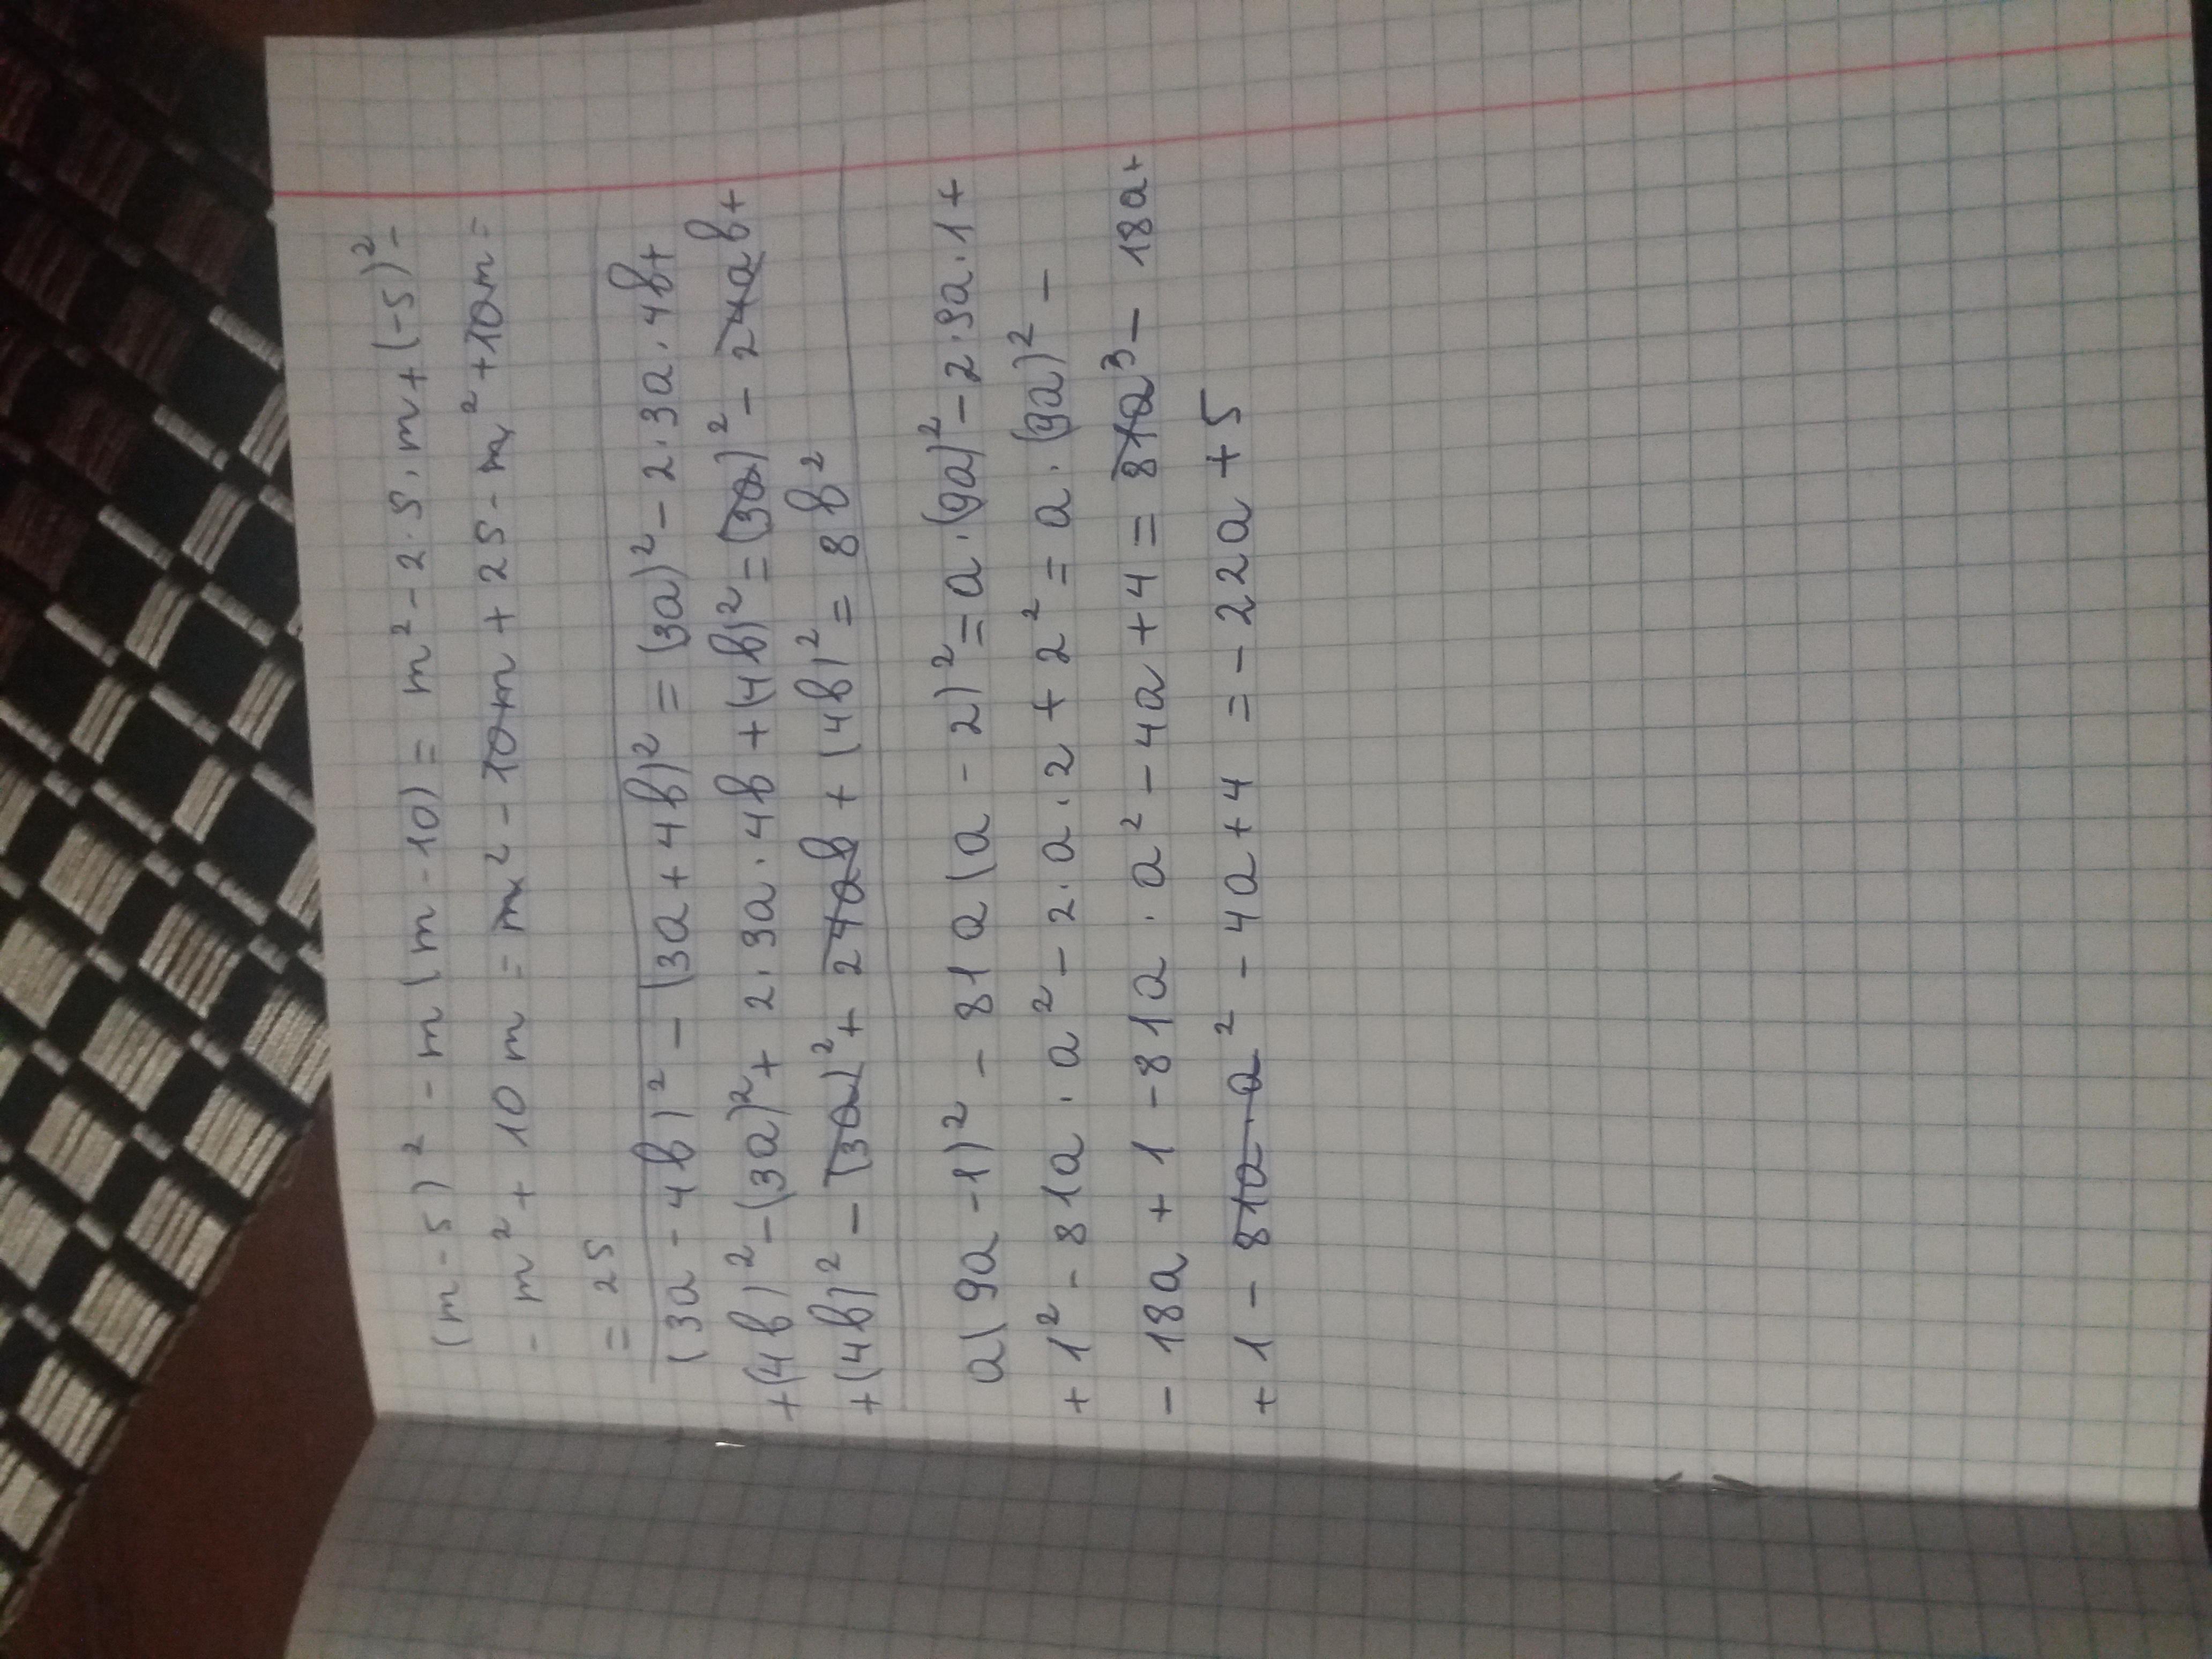 (m-5)² - m(m-10) = m² - 2·5·m + (-5)² -
- m² + 10m = m² - 10m + 25 - m² + 10m =
= 25
(3a - 4b)² - (3a + 4b)² = (3a)² - 2·3a·4b +
+ (4b)² - (3a)² + 2·3a·4b + (4b)² = (3a)² - 24ab +
+ (4b)² - (3a)² + 24ab + (4b)² = 8b²
a(9a - 1)² - 81a(a - 2)² = a·(9a)² - 2·9a·1 +
+ 1² - 81a·a² - 2·a·2 + 2² = a·(9a)² -
- 18a + 1 - 81a·a² - 4a + 4 = 81a³ - 18a +
+ 1 - 81a·a² - 4a + 4 = -22a + 5